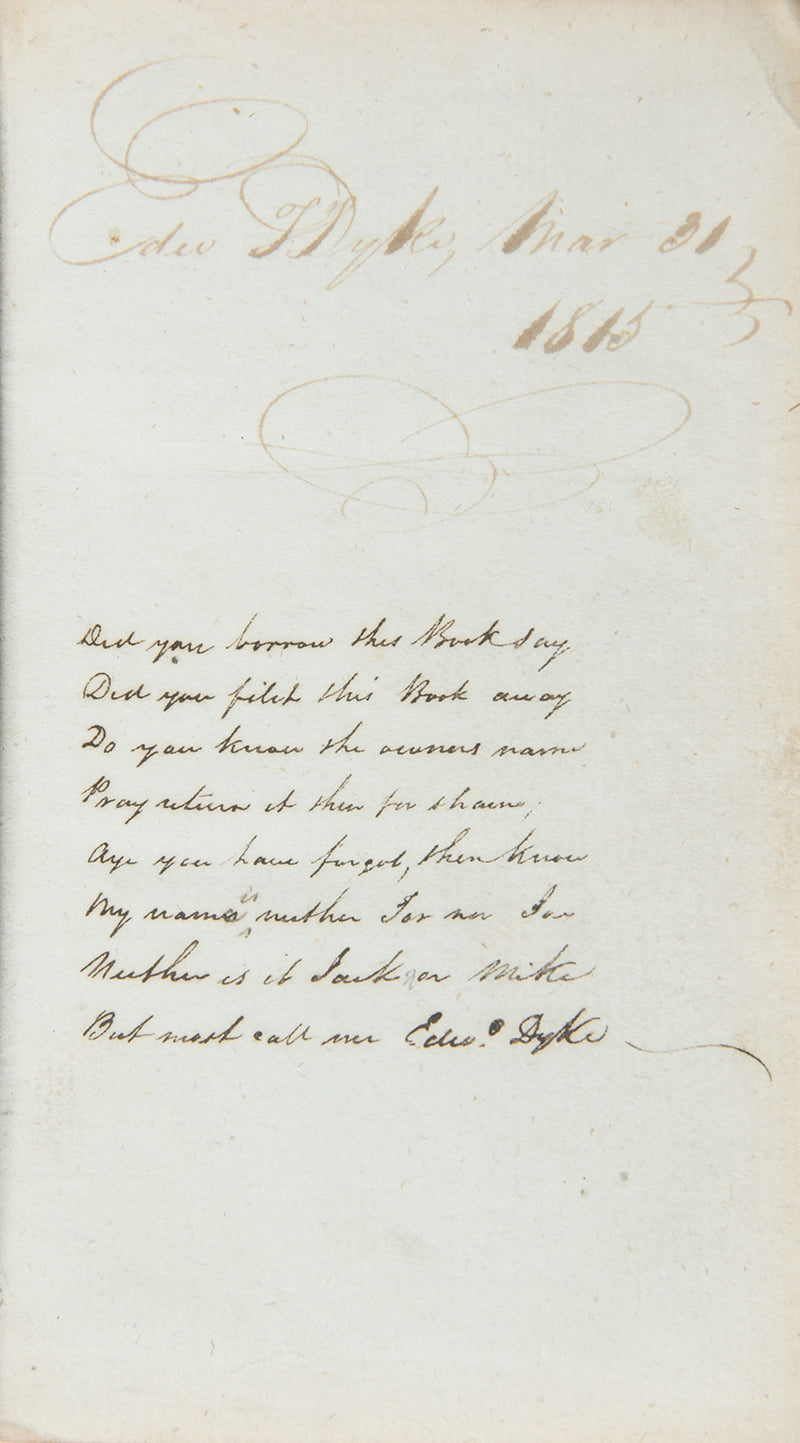 Edw T Dyke, Mar 31
1815
Did you borrow this Book say
Did you filch this Book away
Do you know the owners name
Pray return it then for shame,
Aye you have forgot, then know
My name is neither nor Joe
Neither is it Jack or Mike
But most call me Edwd. Dyke